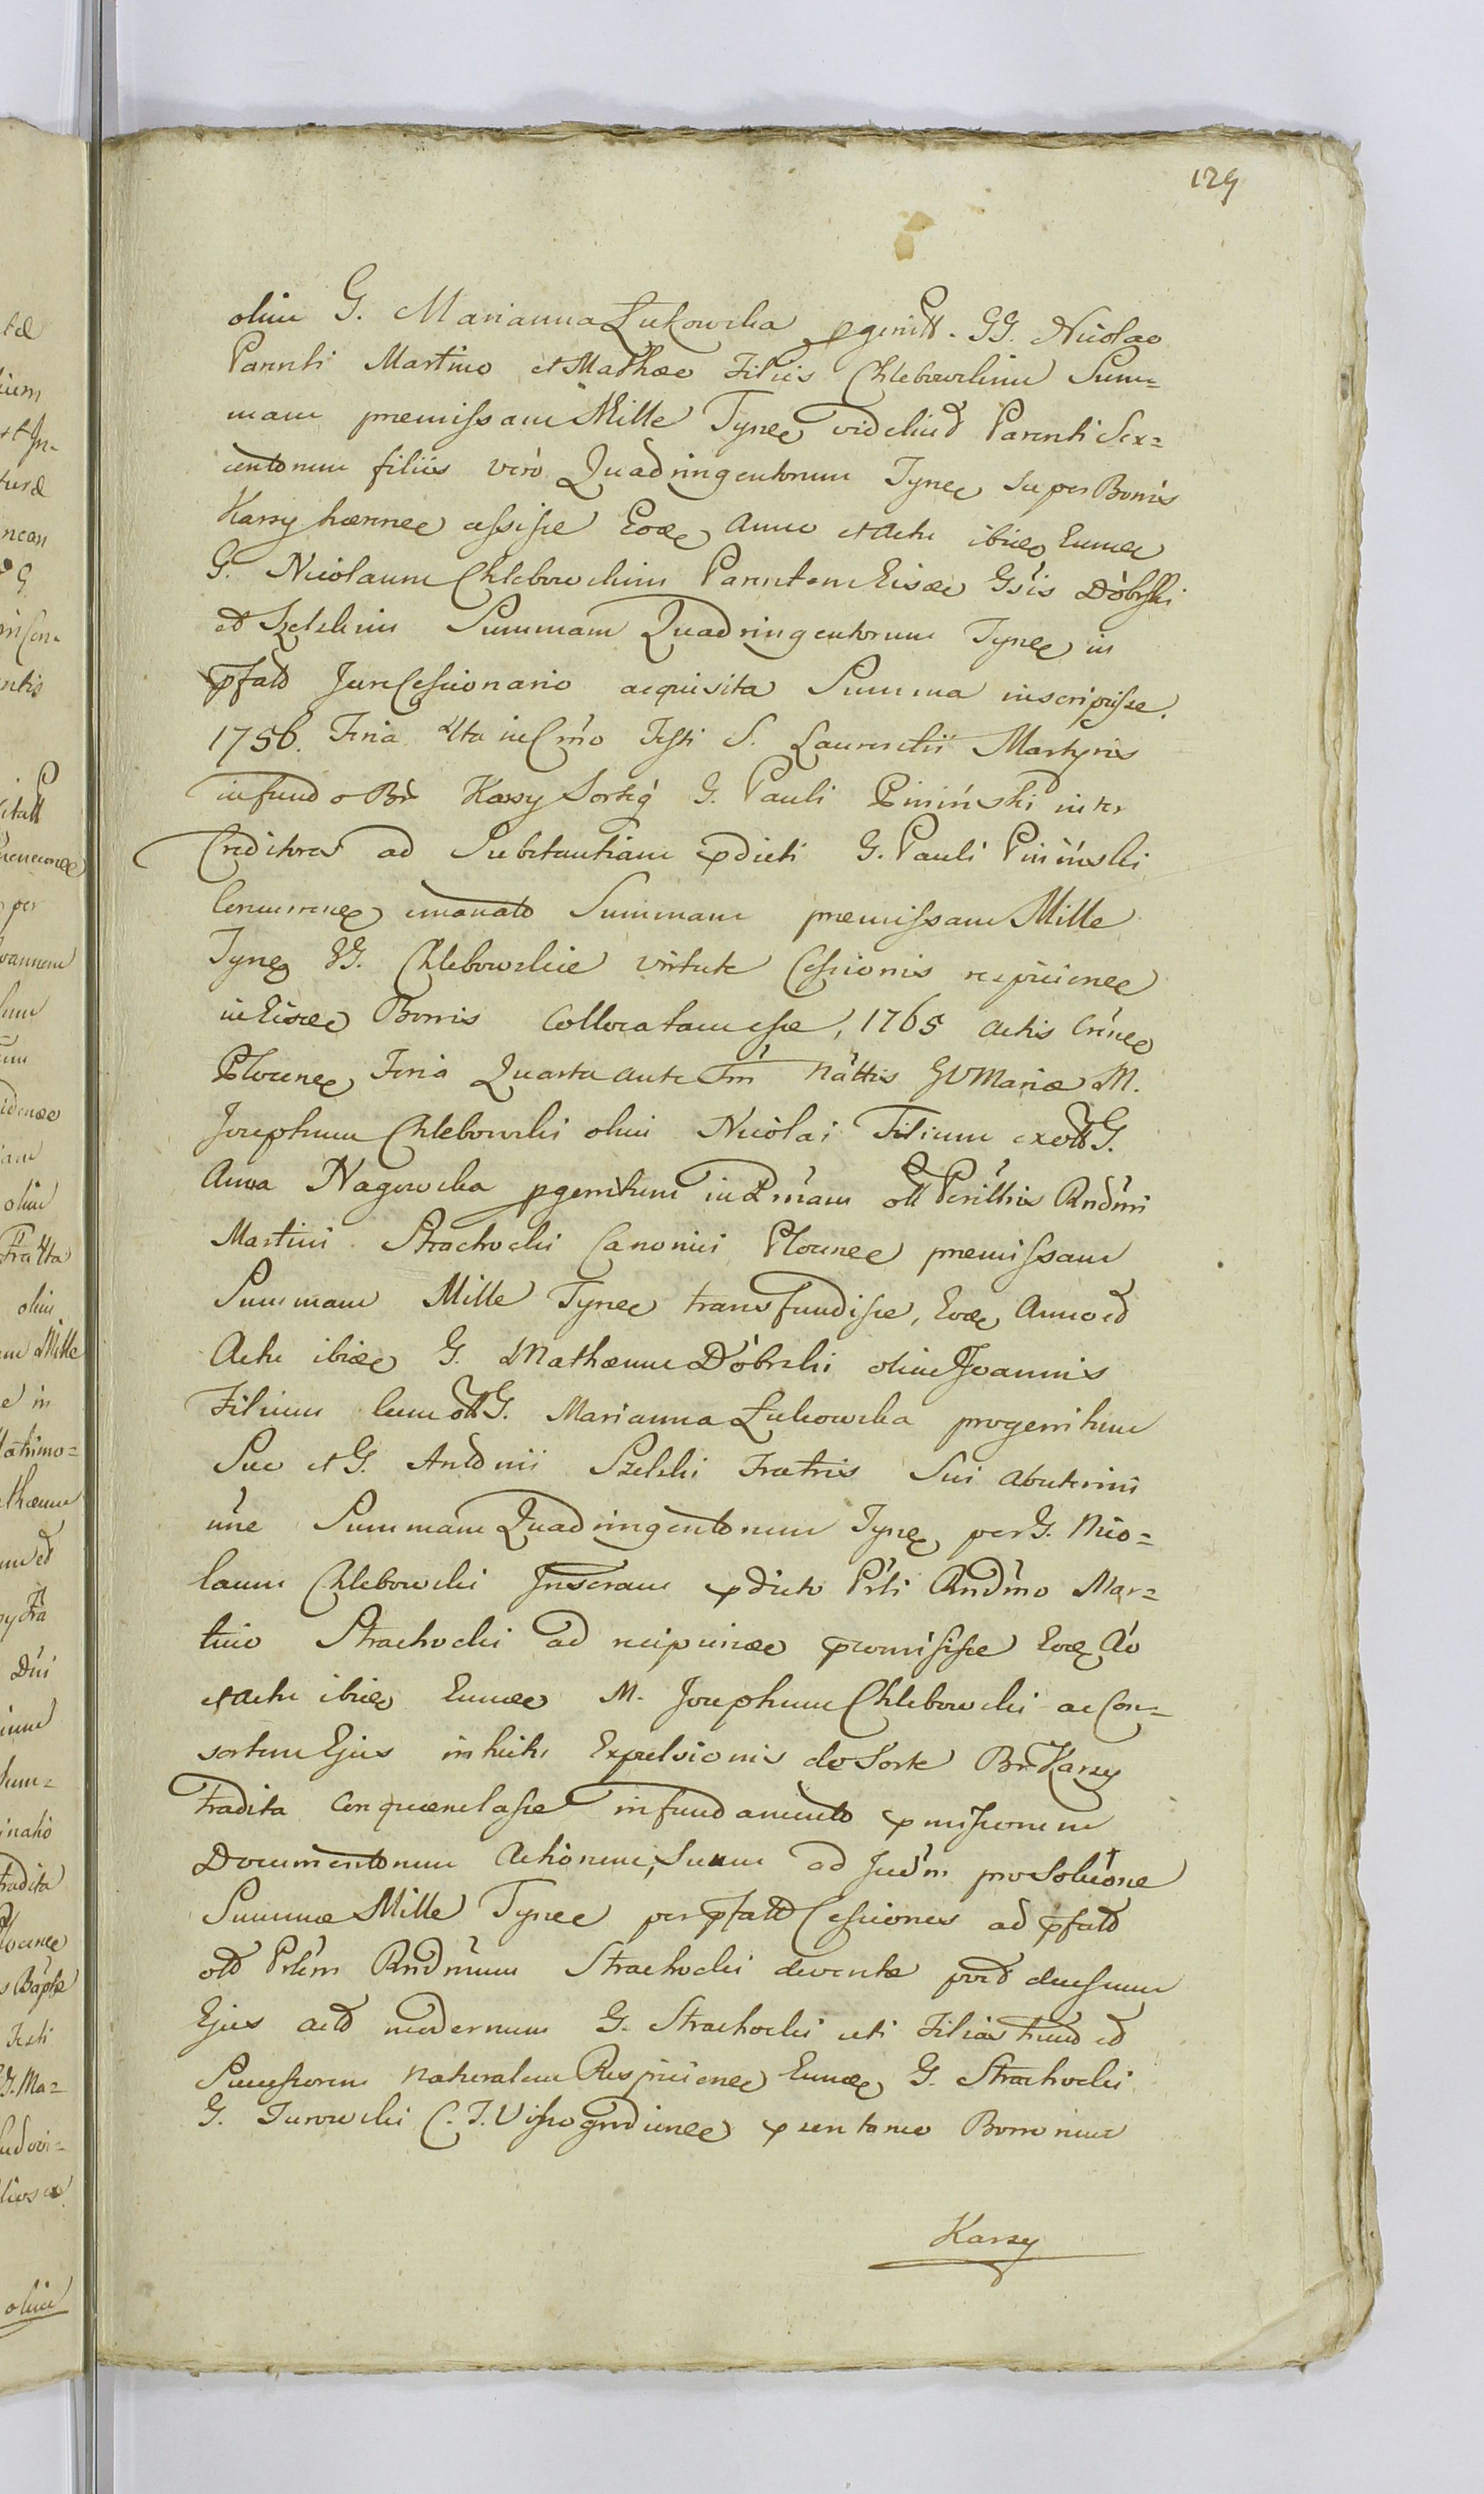 129
olim G. Marianna Łukowska pgenitt. GG. Nicolao
Parenti Martino et Mathæo Filiis Chlebowskim Sum=
mam premissam Mille Tynee videlicet Parenti Sex=
centorum filiis verò Quadringentorum Tynee super Bonis
Karsy hærnee cessisse Eoee Anno et Actu ibiee Eumee
G. Nicolaum Chlebowskim Parentem Eisee Gsis Dobrski
et Szelskim Summam Quadringentorum Tynee in
pfato Jure Cessionario acquisita Summa inscripsisse.
1756. Feria 4ta in Crno Festi S. Laurentii Martyris
in fundo Br Karsy Sortis G. Pauli Pininski inter
Creditores ad Substantiam pdicti G. Pauli Pininski
Concurrenee emanato Summam premissam Mille
Tynee GG. Chlebowskie virtute Cessionis respicienee
in Eisee Bonis Collocatam esse, 1765 Actis Crinee
Plocnee Feria Quarta ante Fm Nattis GVMariæ M.
Josephum Chlebowski olim Nicolai Filium ex ott G.
Anna Nagowska pgenitum in Pnam ott Perilltris Rndmi
Martini Strachocki Canonici Plocnee premissam
Summam Mille Tynee transfundisse, Eoee Anno et
Actu ibiee G. Mathæum Dobrski olim Joannis
Filium cum ott G. Marianna Łukowska progenitum
Suo et G. Antonii Szelski Fratris Sui abuterini
nne Summam Quadringentorum Tynee per G. Nico=
laum Chlebowski Inseram pdicto Prli Rndmo Mar=
tino Strachocki ad recipienee promisisse Eoee Ao
et Actu ibiee Eumee M. Josephum Chlebowski ac Con=
sortem Ejus intuitu Expulsionis de Sorte Br Karsy
tradita Conquerulasse in fundamento pmissorum
Documentorum Actionem, Suum ad Judm pro Solutione
Summæ Mille Tynee per pfatas Cessiones ad pfat
ott Prlem Rndmum Strachocki devente post decessum
Ejus act modernum G. Strachocki uti Filias et
Successorem naturalem Respicienee Eumee G. Strachocki
G. Turowski C. T. Vissogrodienee psentaneo Bonorum
Karsy